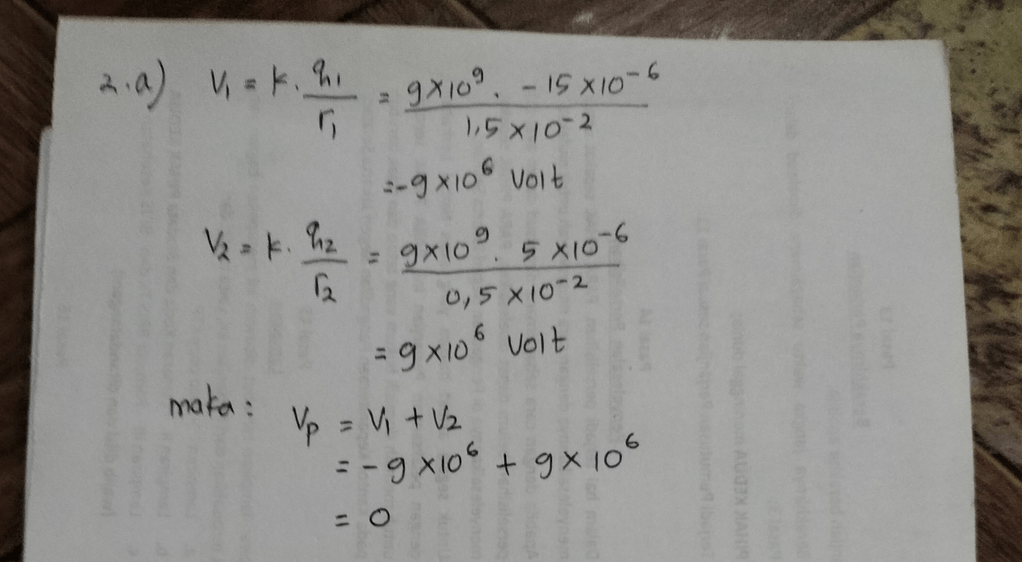 2.a) V₁ = k. q₁/r₁ = 9×10⁹. -15×10⁻⁶/1,5×10⁻²
=-9×10⁶ Volt
V₂ = k. q₂/r₂ = 9×10⁹. 5×10⁻⁶/0,5×10⁻²
= 9×10⁶ Volt
maka: Vp = V₁ + V₂
= -9×10⁶ + 9×10⁶
= 0